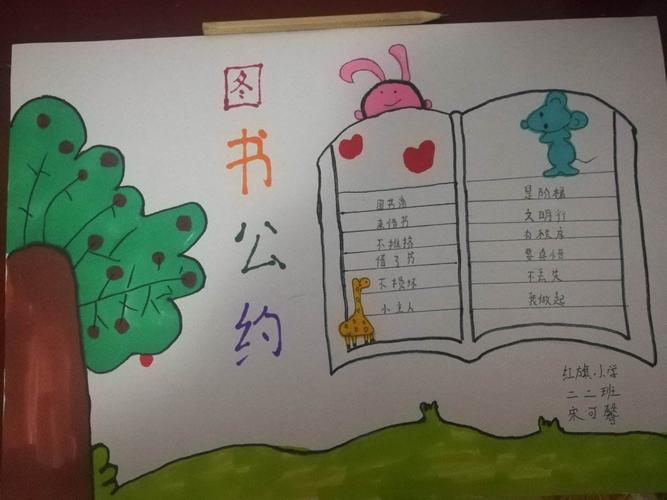 图
书
公
约
图书角
来借书
不推挤
借了书
不损坏
小主人
是阶梯
文明行
有秩序
要爱惜
不丢失
我做起
红旗小学
二二班
宋可馨